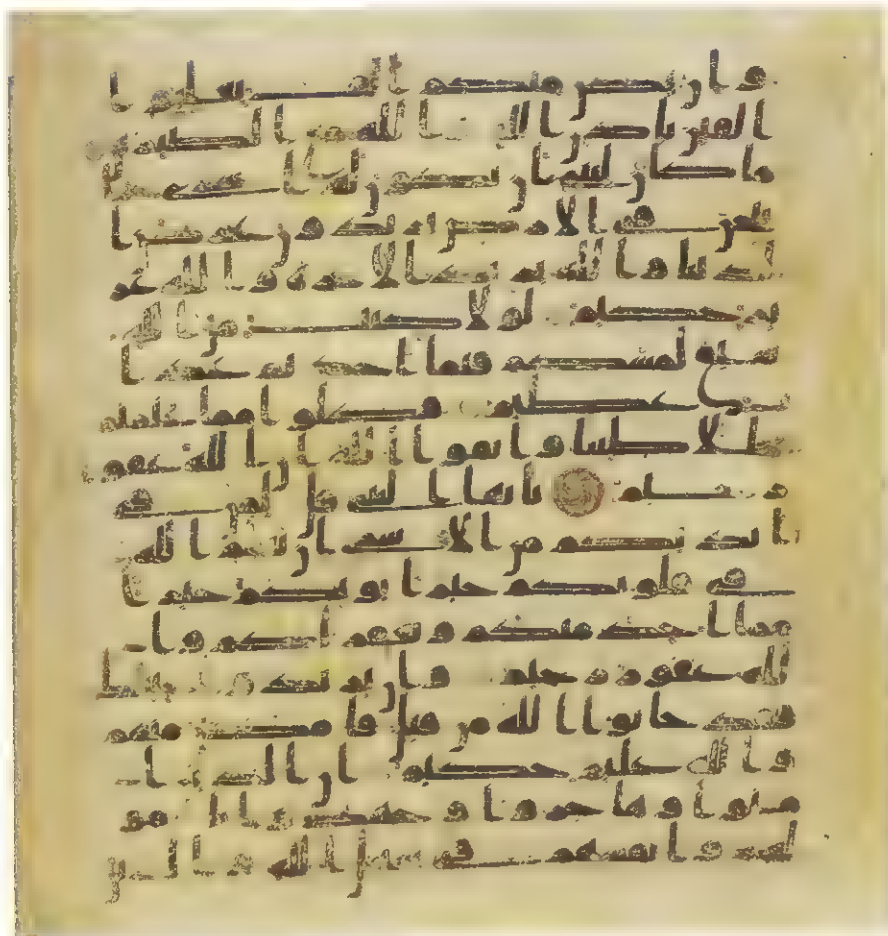 و ان يكن منكم الف يغلبوا
الفين باذن الله و الله مع الصبرين
ما كان لنبي ان يكون له اسرى حتى
يثخن في الارض تريدون عرض ا
لدنيا و الله يريد الاخرة و الله عز
يز حكيم لولا كتب من الله
سبق لمسكم فيما اخذتم عذا
ب عظيم فكلوا مما غنمتم
حللا طيبا و اتقوا الله ان الله غفو
ر رحيم يايها النبي قل لمن في
ايديكم من الاسرى ان يعلم الله
في قلوبكم خيرا يوتكم خيرا
مما اخذ منكم و يغفر لكم و ا
لله غفور رحيم و ان يريدوا خيانتك
فقد خانوا الله من قبل فامكن منهم
و الله عليم حكيم ان الذين ا
منوا و هاجروا و جهدوا باموا
لهم و انفسهم في سبيل الله و الذين